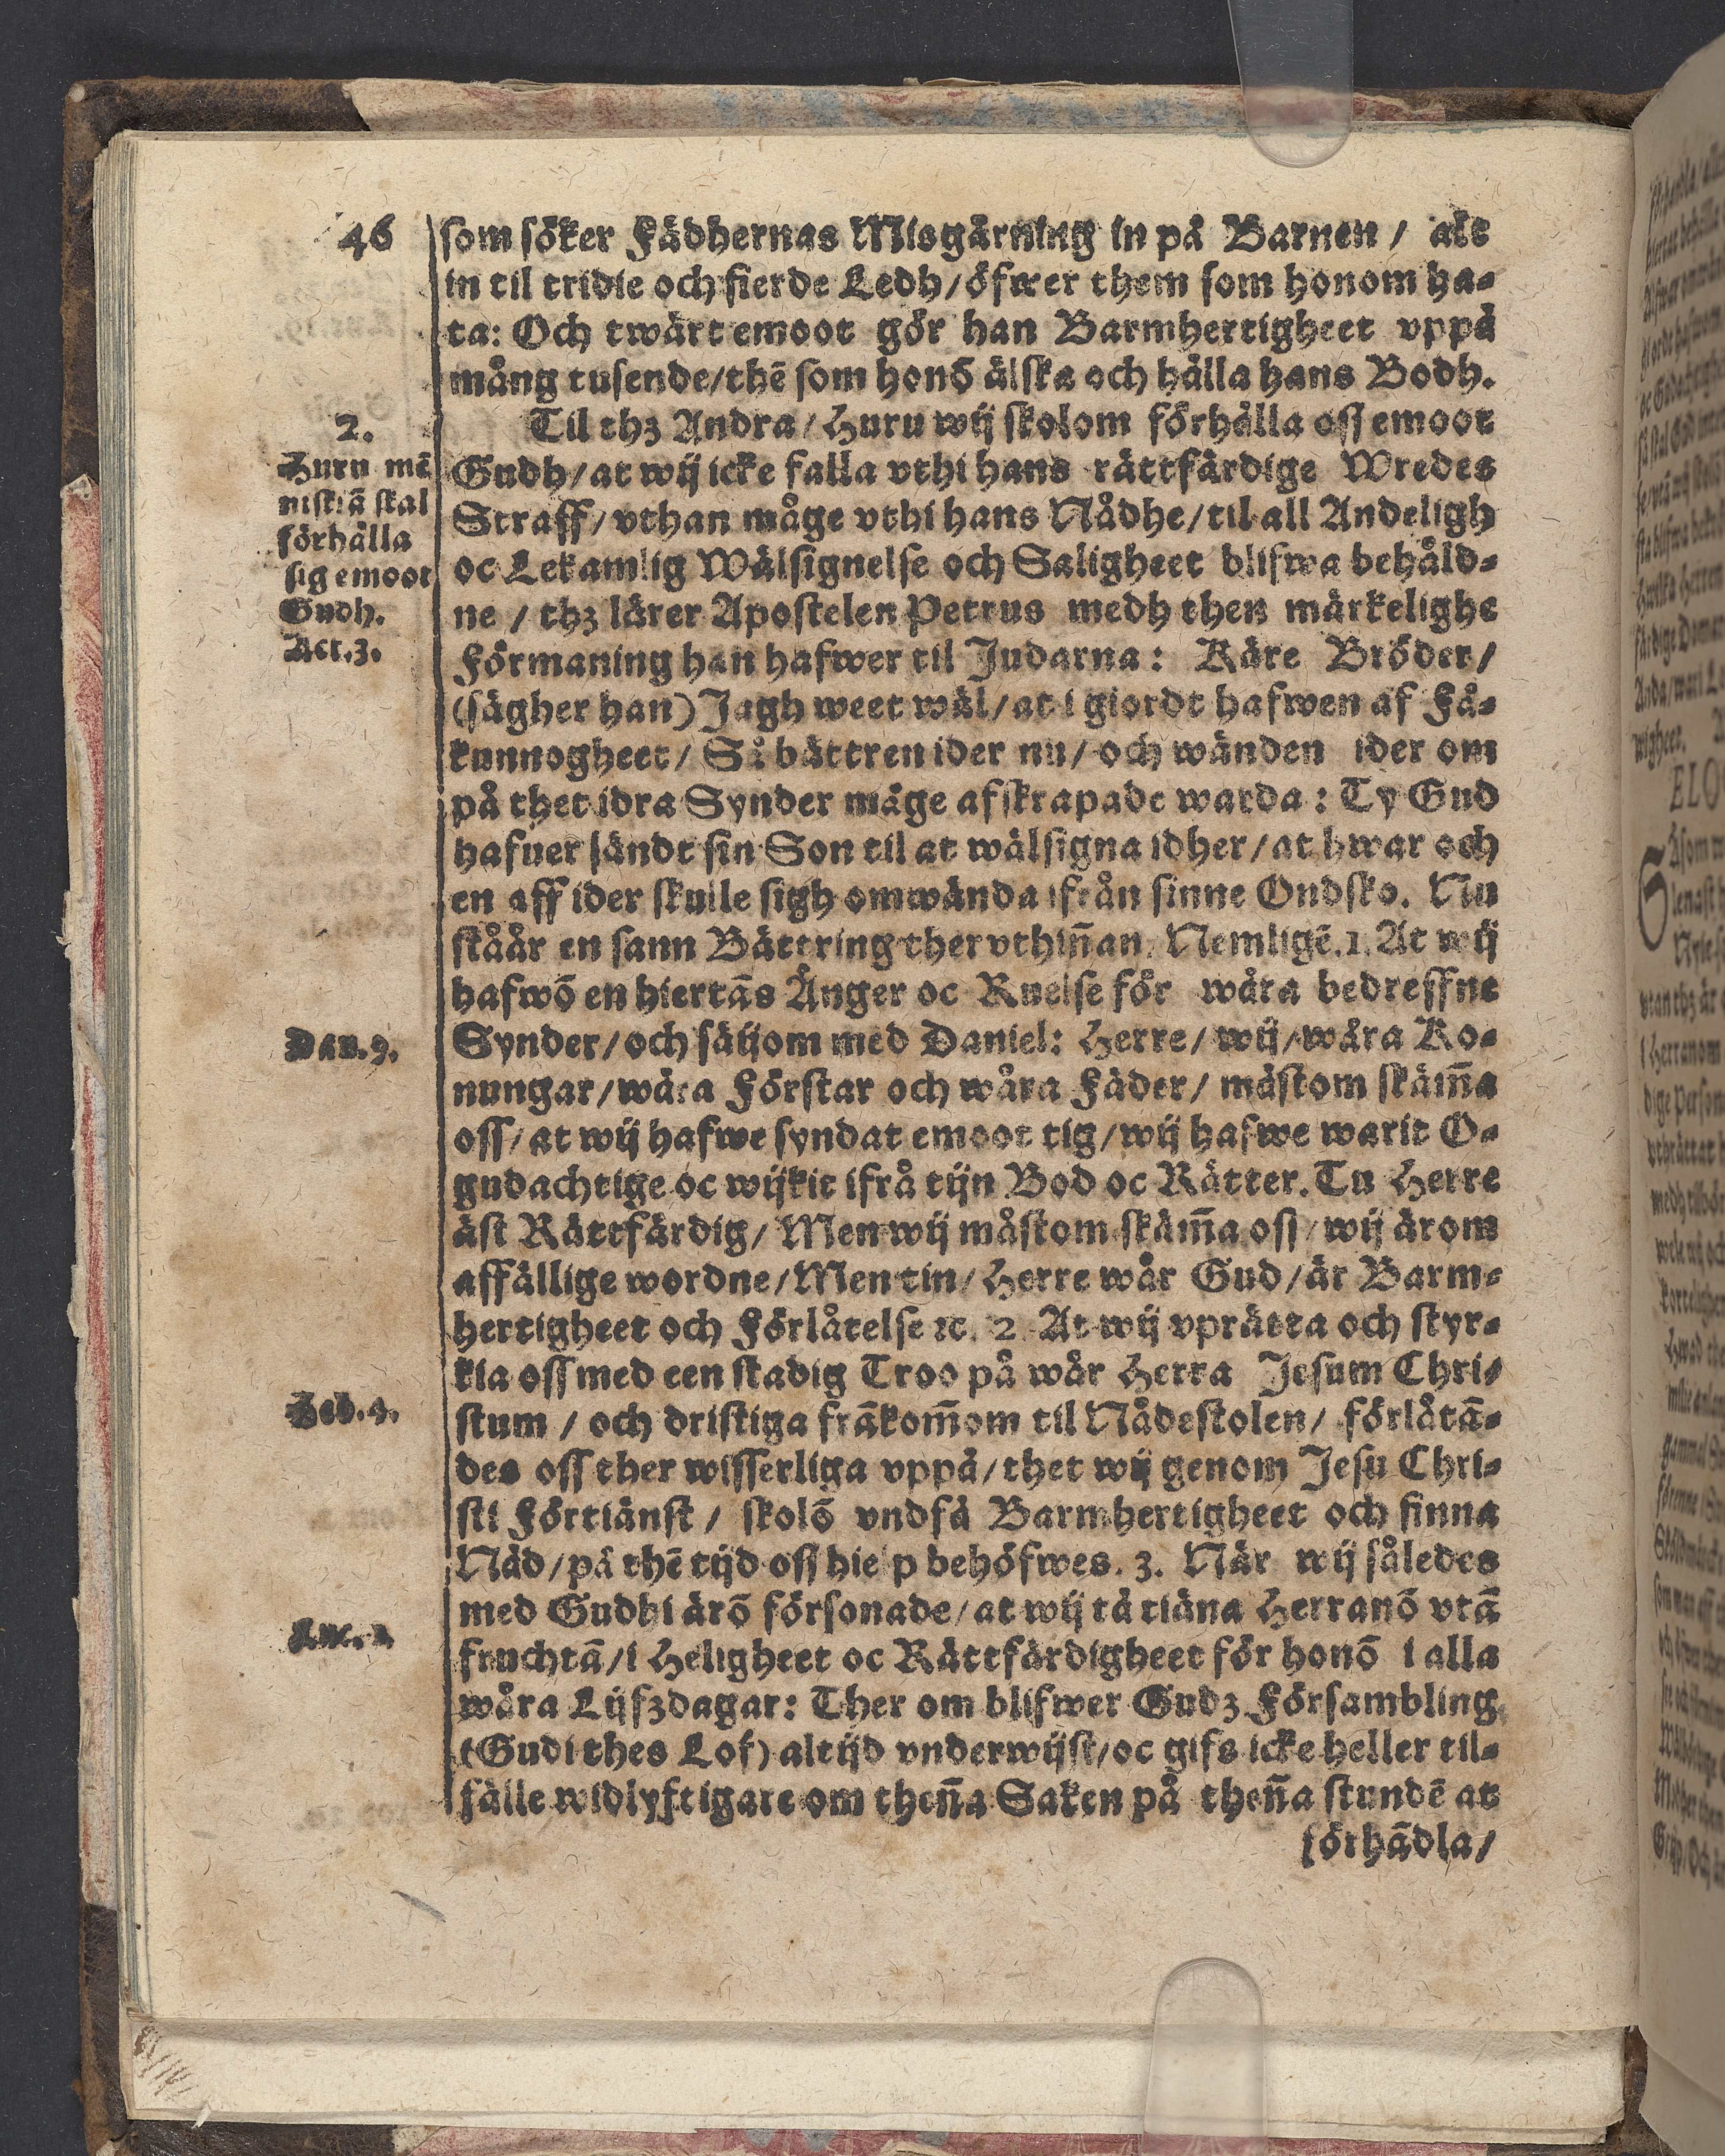 46
som söker Fädhernas Misgärning in på Barnen / alt
in til tridie och fierde Ledh/öfwer them som honom ha-
ta: Och twärt emoot gör han Barmhertigheet vppå
mång tusende/thē som honō älska och hålla hans Bodh.
2.
Huru mē
niskiā skal
förhålla
sig emoot
Gudh.
Act.3.
Til thz Andra/Huru wij skolom förhålla oss emoot
Gudh/at wij icke falla vthi hans rättfärdige Wredes
Straff/vthan måge vthi hans Nådhe/til all Andeligh
oc Lekamlig Wälsignelse och Saligheet blifwa behåld-
ne / thz lärer Apostelen Petrus medh then märkelighe
Förmaning han hafwer til Judarna: Käre Bröder/
(sägher han) Jagh weet wäl/at i giordt hafwen af Få-
kunnogheet/ Så bättren ider nu/och wänden ider om
på thet idra Synder måge afskrapade warda: Ty Gud
hafuer sändt sin Son til at wälsigna idher/at hwar och
en aff ider skulle sigh omwända ifrån sinne Ondsko. Nu
ståår en sann Bättring ther vthiñan. Nemligē.1. At wij
hafwō en hiertās Ånger oc Ruelse för wåra bedreffne
Dan.9.
Synder/och säijom med Daniel: Herre/wij/wåra Ko-
nungar/wåra Förstar och wåra Fäder/ måstom skäm̃a
oss/at wij hafwe syndat emoot tig/wij hafwe warit O-
gudachtige oc wijkit ifrå tijn Bod oc Rätter. Tu Herre
äst Rättfärdig/Men wij måstom skäm̃a oss/wij ärom
affällige wordne/Men tin/Herre wår Gud/är Barm-
hertigheet och Förlåtelse ꝛc. 2. At wij vprätta och styr-
kia oss med een stadig Troo på wår Herra Jesum Chri-
Heb.4.
stum / och dristiga frākom̃om til Nådestolen/ förlåtā-
des oss ther wisserliga vppå/thet wij genom Jesu Chri-
sti Förtiänst / skolō vndfå Barmhertigheet och finna
Nåd/på thē tijd oss hielp behöfwes. 3. När wij således
med Gudhi ärō försonade/at wij tå tiäna Herranō vtā
Luc.
fruchtā/i Heligheet oc Rättfärdigheet för honō i alla
wåra Lijfzdagar: Ther om blifwer Gudz Försambling
(Gudi thes Lof) altijd vnderwijst/oc gifs icke heller til-
fälle widlyftigare om theña Saken på theña stundē at
förhādla/